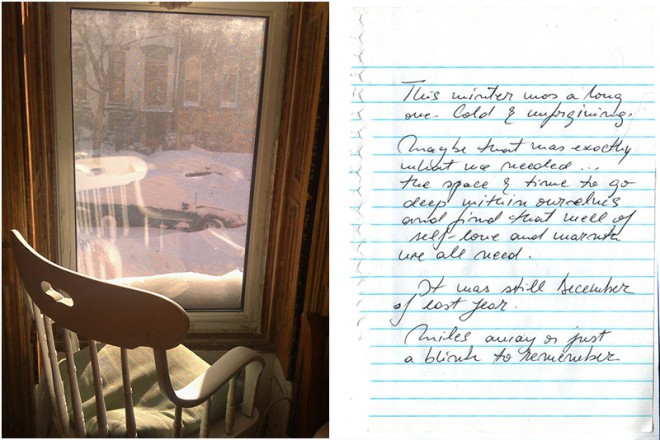 This winter was a long
one. Cold & unforgiving.
Maybe that was exactly
what we needed...
the space & time to go
deep within ourselves
and find that well of
self-love and warmth
we all need.
It was still December
of last year.
Miles away or just
a blink to remember